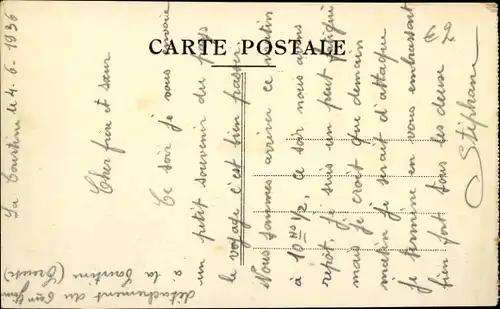 CARTE POSTALE
€2
La Courtine le 4-6-1936
Cher frère et sœur
Ce soir je vous envoie
un petit souvenir du pays
le voyage c'est bien passer
Nous sommes arriver ce matin
à 10 Hs 1/2, ce soir nous avons
repôt, je suis un peut fatigué
mais je croit que demain
matin je serait d'attaque
Je termine en vous embrassant
bien fort tous les deuse
Stéphane
détachement du
à la Courtine (Creuse)